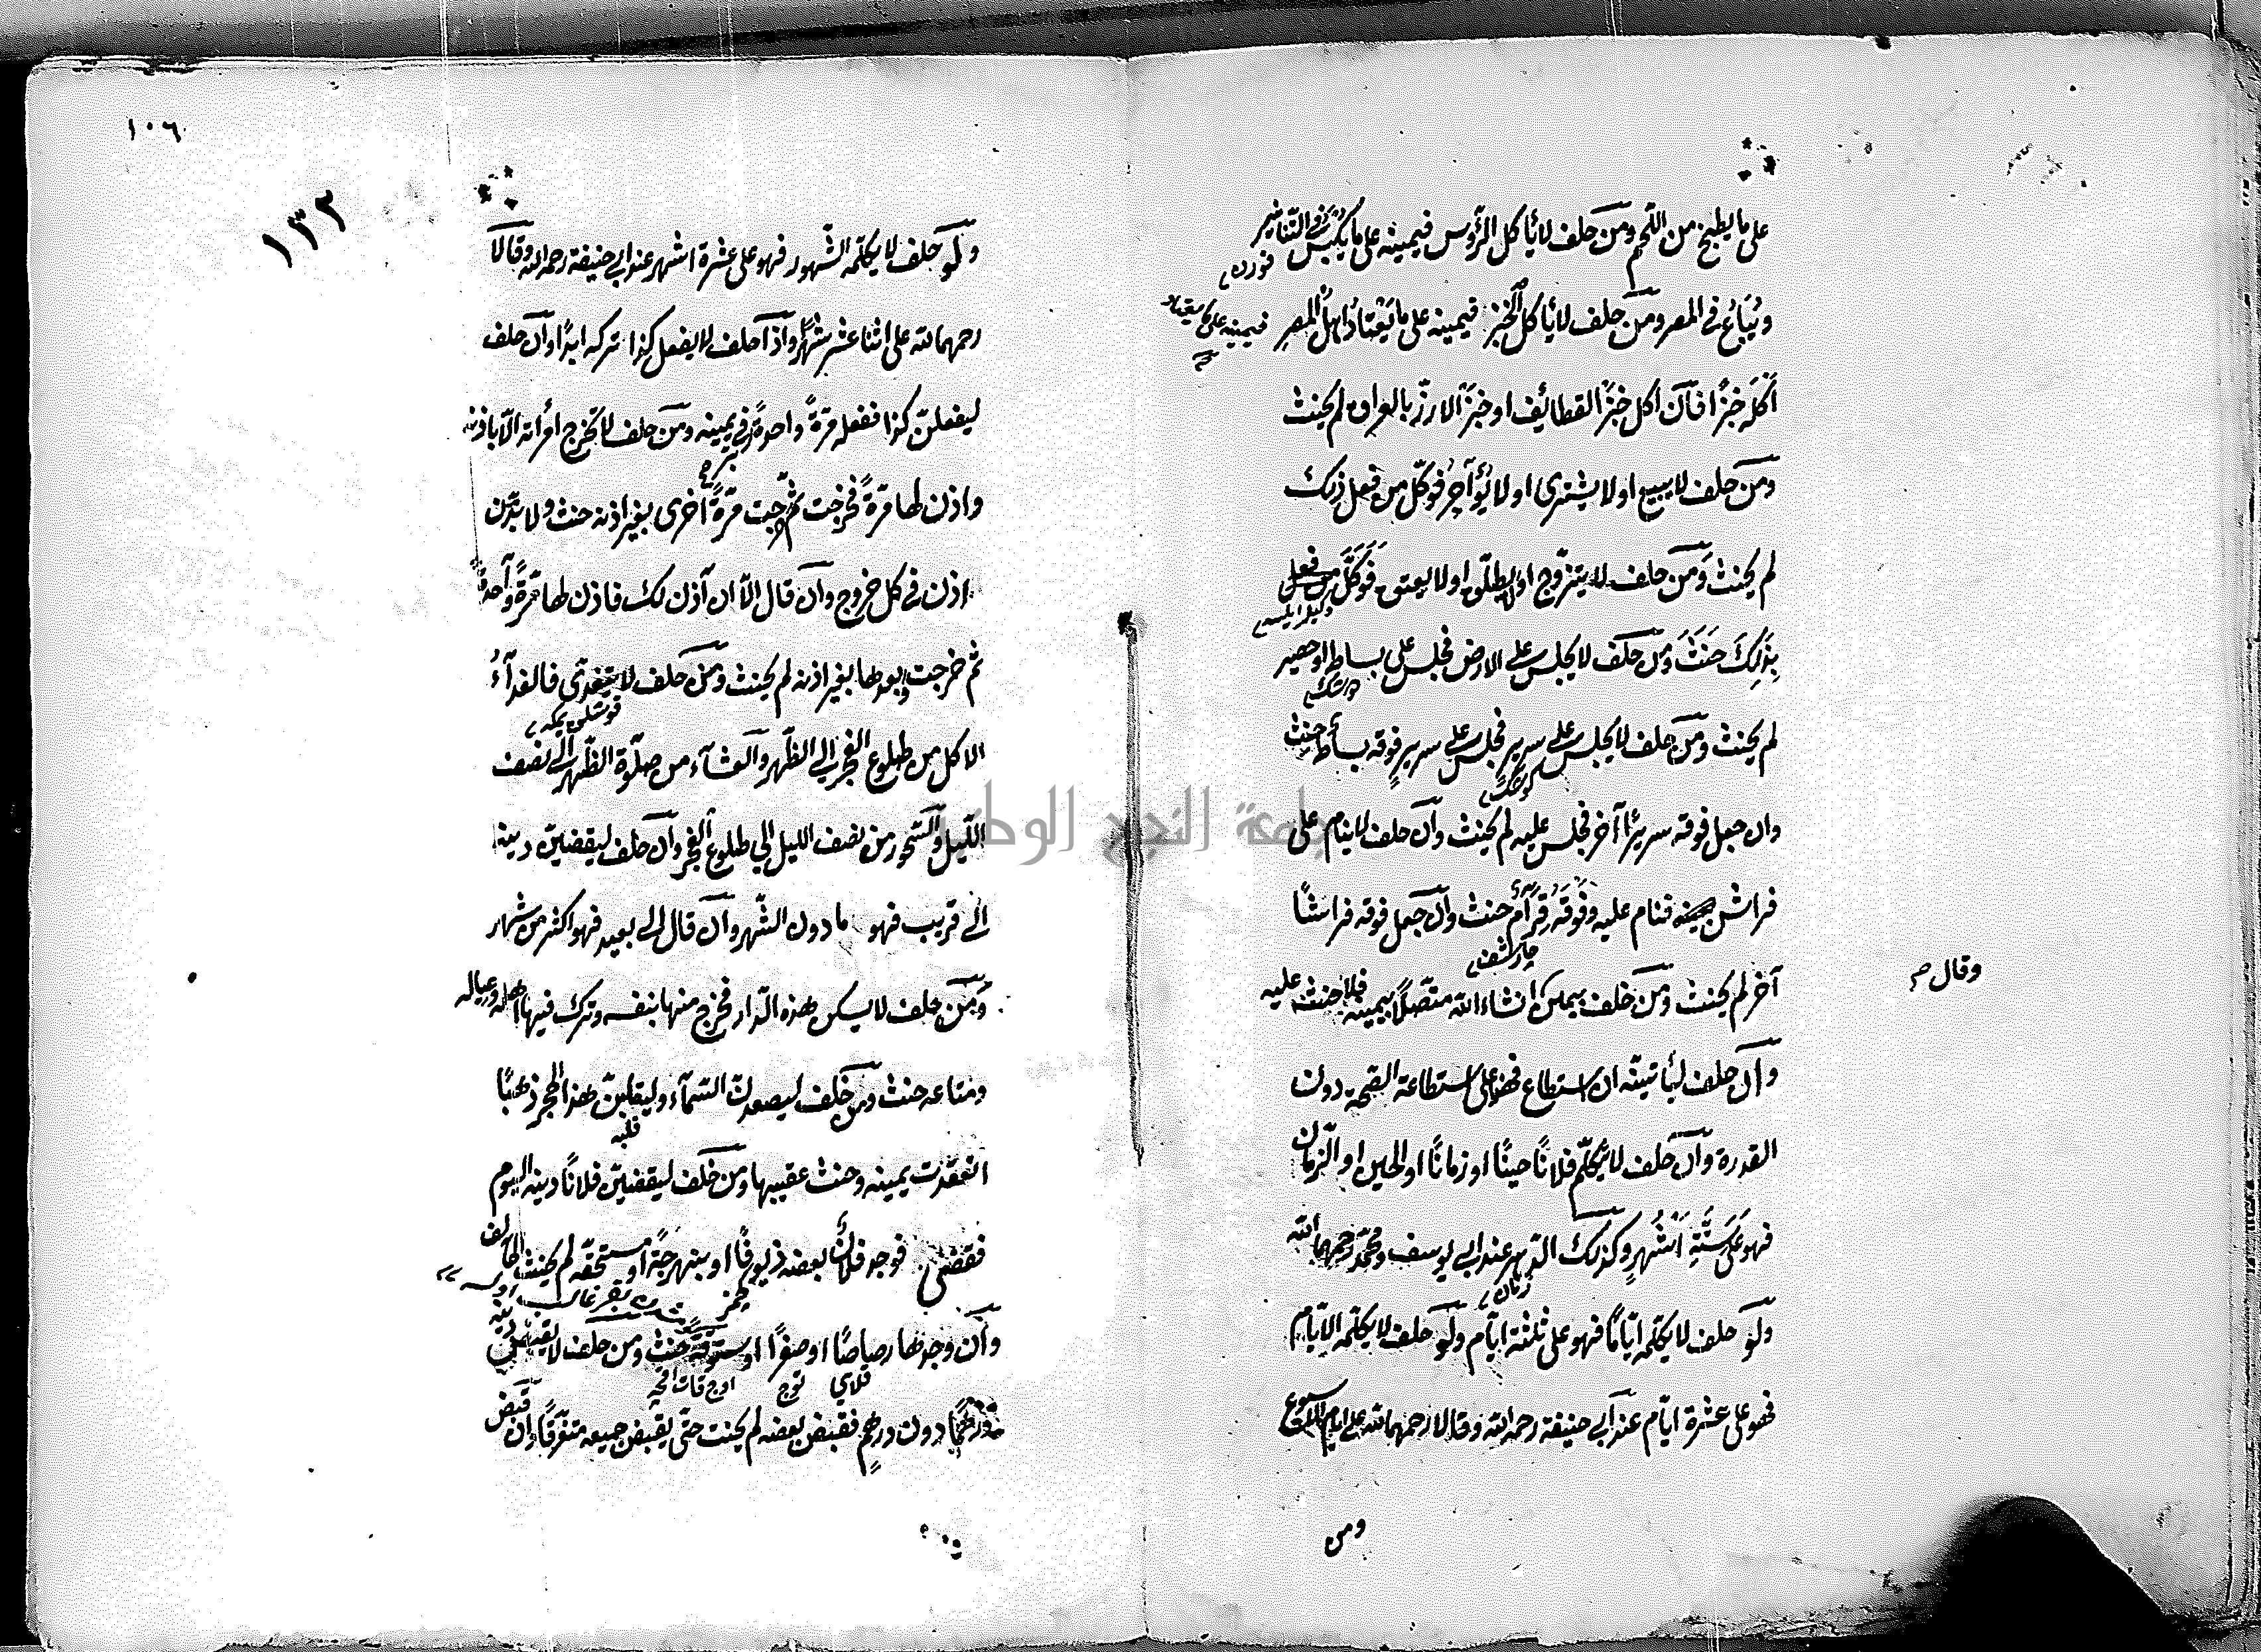 على ما يطبخ من اللحم ومن حلف لا يأكل الرؤس فيمينه على ما يكبس في التنانير
ويباع في المصر ومن حلف لا يأكل الخبز فيمينه على ما يعتاد اهل المصر
اكله خبزا فان اكل خبز القطائف او خبز الارز بالعراق لم يحنث
ومن حلف لا يبيع او لا يشتري او لا يؤآجر فوكل من فعل ذلك
لم يحنث ومن حلف لا يتزوج او لا يطلق او لا يعتق فوكل من فعل
بذلك حنث ومن حلف لا يجلس على الارض فجلس على بساط او حصير
لم يحنث ومن حلف لا يجلس على سرير فجلس على سرير فوقه بساط حنث
وان جعل فوقه سريرا آخر فجلس عليه لم يحنث وان حلف لا ينام على
فراش فنام عليه وفوقه قرام حنث وان جعل فوقه فراشا
آخر لم يحنث ومن حلف بيمين انشاء الله متصلا بيمينه فلا حنث عليه
وقال صح
وان حلف ليأتينه ان استطاع فهو على استطاعة الصحة دون
القدرة وان حلف لا يكلم فلانا حينا او زمانا او الحين او الزمان
فهو على ستة اشهر وكذلك الدهر عند ابي يوسف ومحمد رحمهما الله
ولو حلف لا يكلمه اياما فهو على ثلثة ايام ولو حلف لا يكلمه الايام
فهو على عشرة ايام عند ابي حنيفة رحمه الله وقالا رحمهما الله على ايام الاسبوع
ومن
١٠٦
١٣٢
ولو حلف لا يكلمه الشهور فهو على عشرة اشهر عند ابي حنيفة رحمه الله وقالا
رحمهما الله على اثنا عشر شهرا واذا حلف لا يفعل كذا تركه ابدا وان حلف
ليفعلن كذا ففعله مرة واحدة بر في يمينه ومن حلف لا تخرج امرأته الا باذنه
واذن لها مرة فخرجت ثم خرجت مرة اخرى بغير اذنه حنث ولا بد من
اذن في كل خروج وان قال الا ان آذن لك فاذن لها مرة واحدة
ثم خرجت وبعدها بغير اذنه لم يحنث ومن حلف لا يتغدى فالغدآء
الاكل من طلوع الفجر الى الظهر والعشآء من صلوة الظهر الى نصف
الليل والسحور من نصف الليل الى طلوع الفجر وان حلف ليقضين دينه
الى قريب فهو ما دون الشهر وان قال الى بعيد فهو اكثر من شهر
ومن حلف لا يسكن هذه الدار فخرج منها بنفسه وترك فيها اهله وعياله
ومتاعه حنث ومن حلف ليصعدن السمآء وليقلبن هذا الحجر ذهبا
انعقدت يمينه وحنث عقيبها ومن حلف ليقضين فلانا دينه اليوم
فقضى فوجد فلان بعضه زيوفا او بنهرجة او مستحقه لم يحنث الحالف
وان وجدها رصاصا او صفرا او ستوقة حنث ومن حلف لا يقبض دينه
درهما دون درهم فقبض بعضه لم يحنث حتى يقبض جميعه متفرقا وان قبض
جامعة النجاح الوطنية